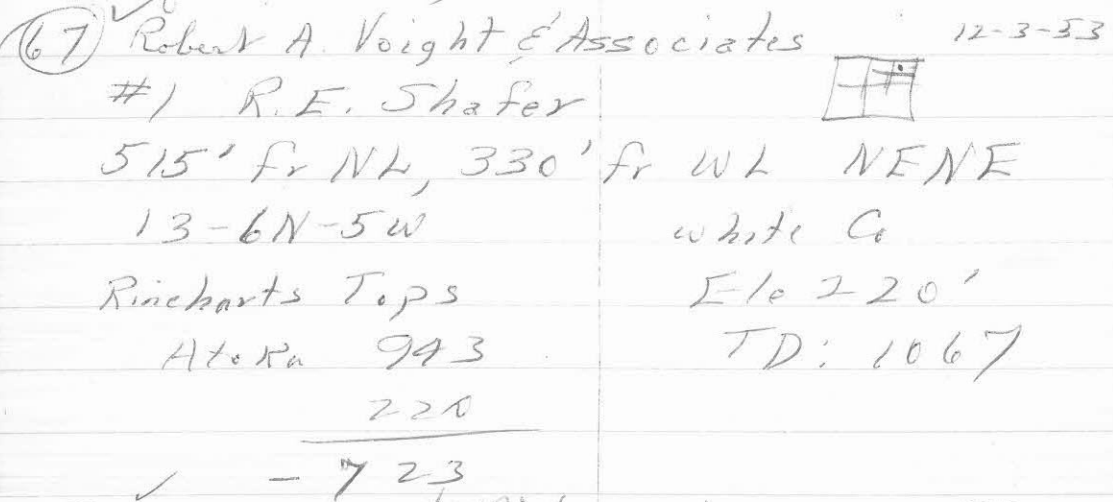 67 Robert A. Voight & Associates 12-3-53
#1 R.E. Shafer
515' fr NL, 330' fr WL NENE
13-6N-5W white Co
Rineharts Tops Ele 220'
Atoka 943 TD: 1067
220
- 723